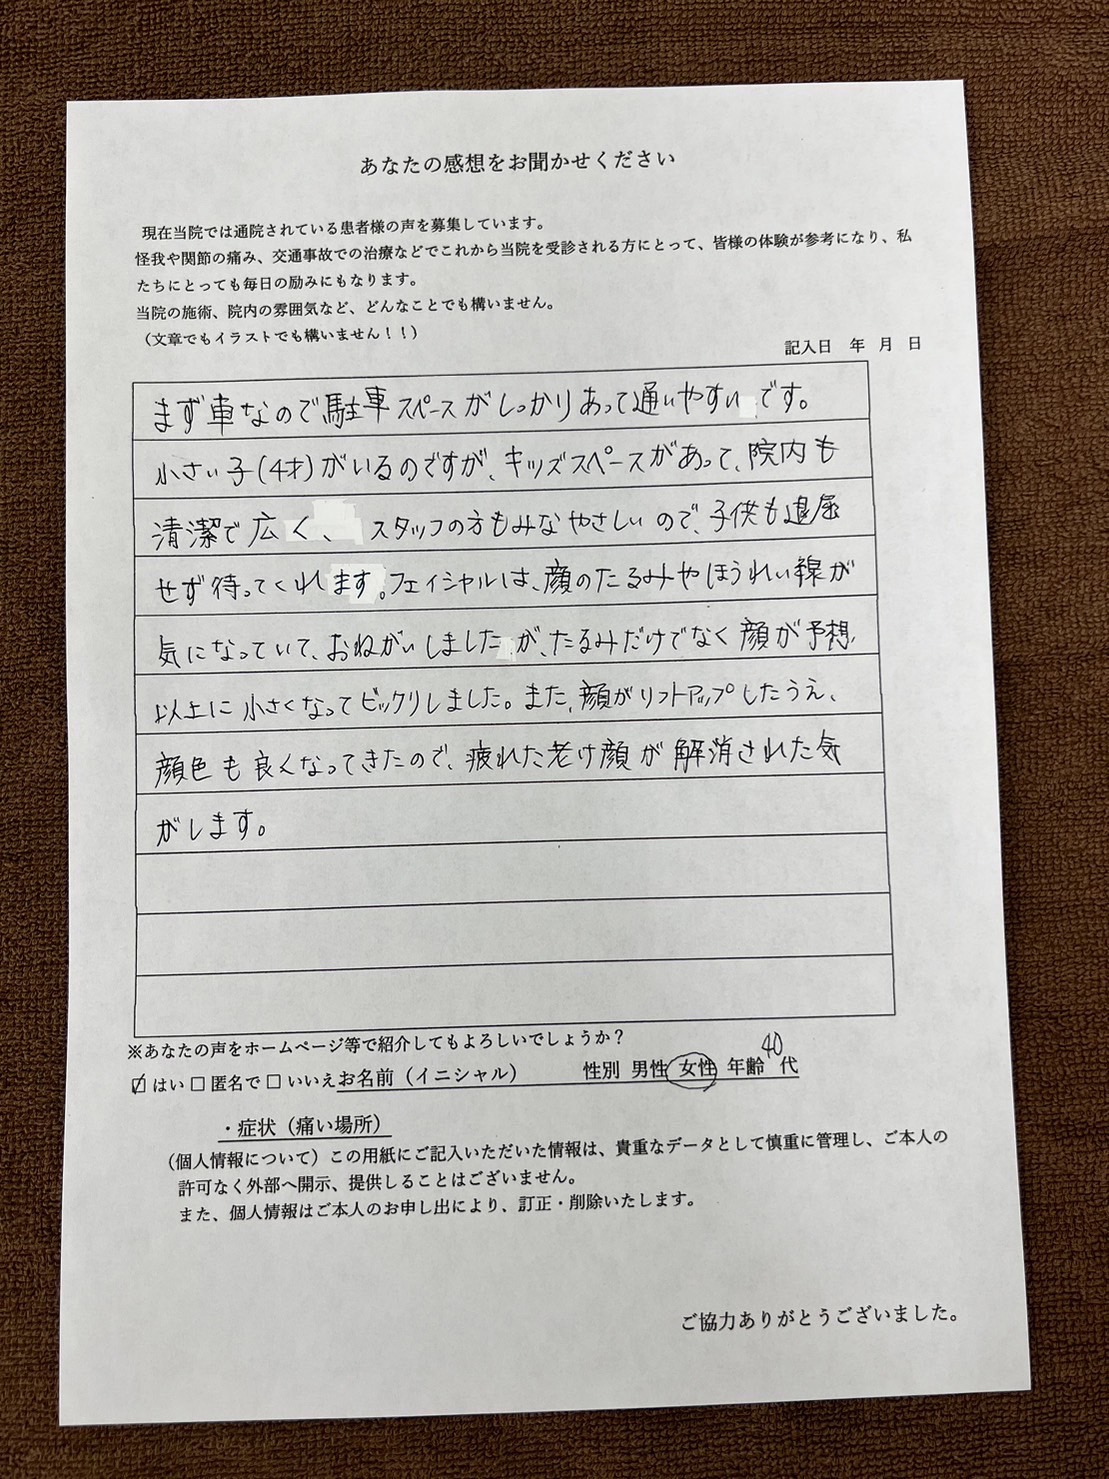 あなたの感想をお聞かせください
現在当院では通院されている患者様の声を募集しています。
怪我や関節の痛み、交通事故での治療などでこれから当院を受診される方にとって、皆様の体験が参考になり、私
たちにとっても毎日の励みにもなります。
当院の施術、院内の雰囲気など、どんなことでも構いません。
（文章でもイラストでも構いません！！）
記入日 年 月 日
まず車なので駐車スペースがしっかりあって通いやすいです。
小さい子(4才)がいるのですが、キッズスペースがあって、院内も
清潔で広く、スタッフの方もみなやさしいので、子供も退屈
せず待ってくれます。フェイシャルは、顔のたるみやほうれい線が
気になっていて、おねがいしましたが、たるみだけでなく顔が予想
以上に小さくなってビックリしました。また、顔がリフトアップしたうえ、
顔色も良くなってきたので、疲れた老け顔が解消された気
がします。
※あなたの声をホームページ等で紹介してもよろしいでしょうか？
☑はい □匿名で □いいえ お名前（イニシャル） 性別 男性 女性 年齢 40代
・症状（痛い場所）
（個人情報について）この用紙にご記入いただいた情報は、貴重なデータとして慎重に管理し、ご本人の
許可なく外部へ開示、提供しることはございません。
また、個人情報はご本人のお申し出により、訂正・削除いたします。
ご協力ありがとうございました。